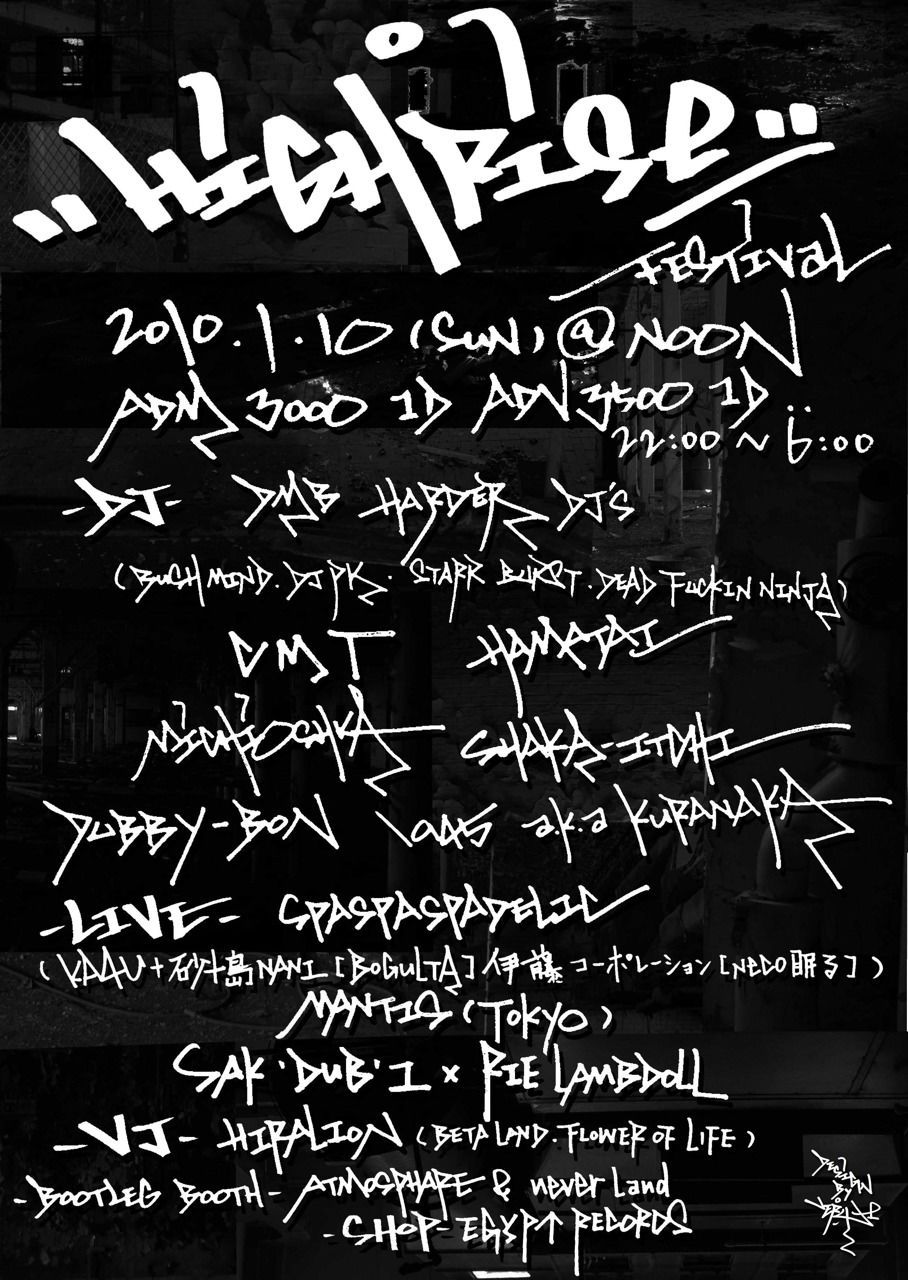 "HIGH RISE"
FESTIVAL
2010.1.10 (SUN) @ NOON
ADM 3000 1D ADV 3500 1D
22:00 ~ 6:00
-DJ- DMB HARDER DJ'S
(BUSHMIND. DJ PK. STARR BURST. DEAD FUCKIN NINJA)
VMT HAMATAI
MICHIOSHKA SHAKA-ITCHI
DUBBY-BON a.k.a KURANAKA
-LIVE- SPASPASPADELIC
(KA4U+砂十島NANI [BOGULTA] 伊藤コーポレーション [NECO眠る])
MANTIS (TOKYO)
SAK 'DUB' I x RIE LAMBDOLL
-VJ- HIRALION (BETALAND. FLOWER OF LIFE)
-BOOTLEG BOOTH- ATMOSPHARE & never Land
-SHOP- EGYPT RECORDS
DESIGN
BY